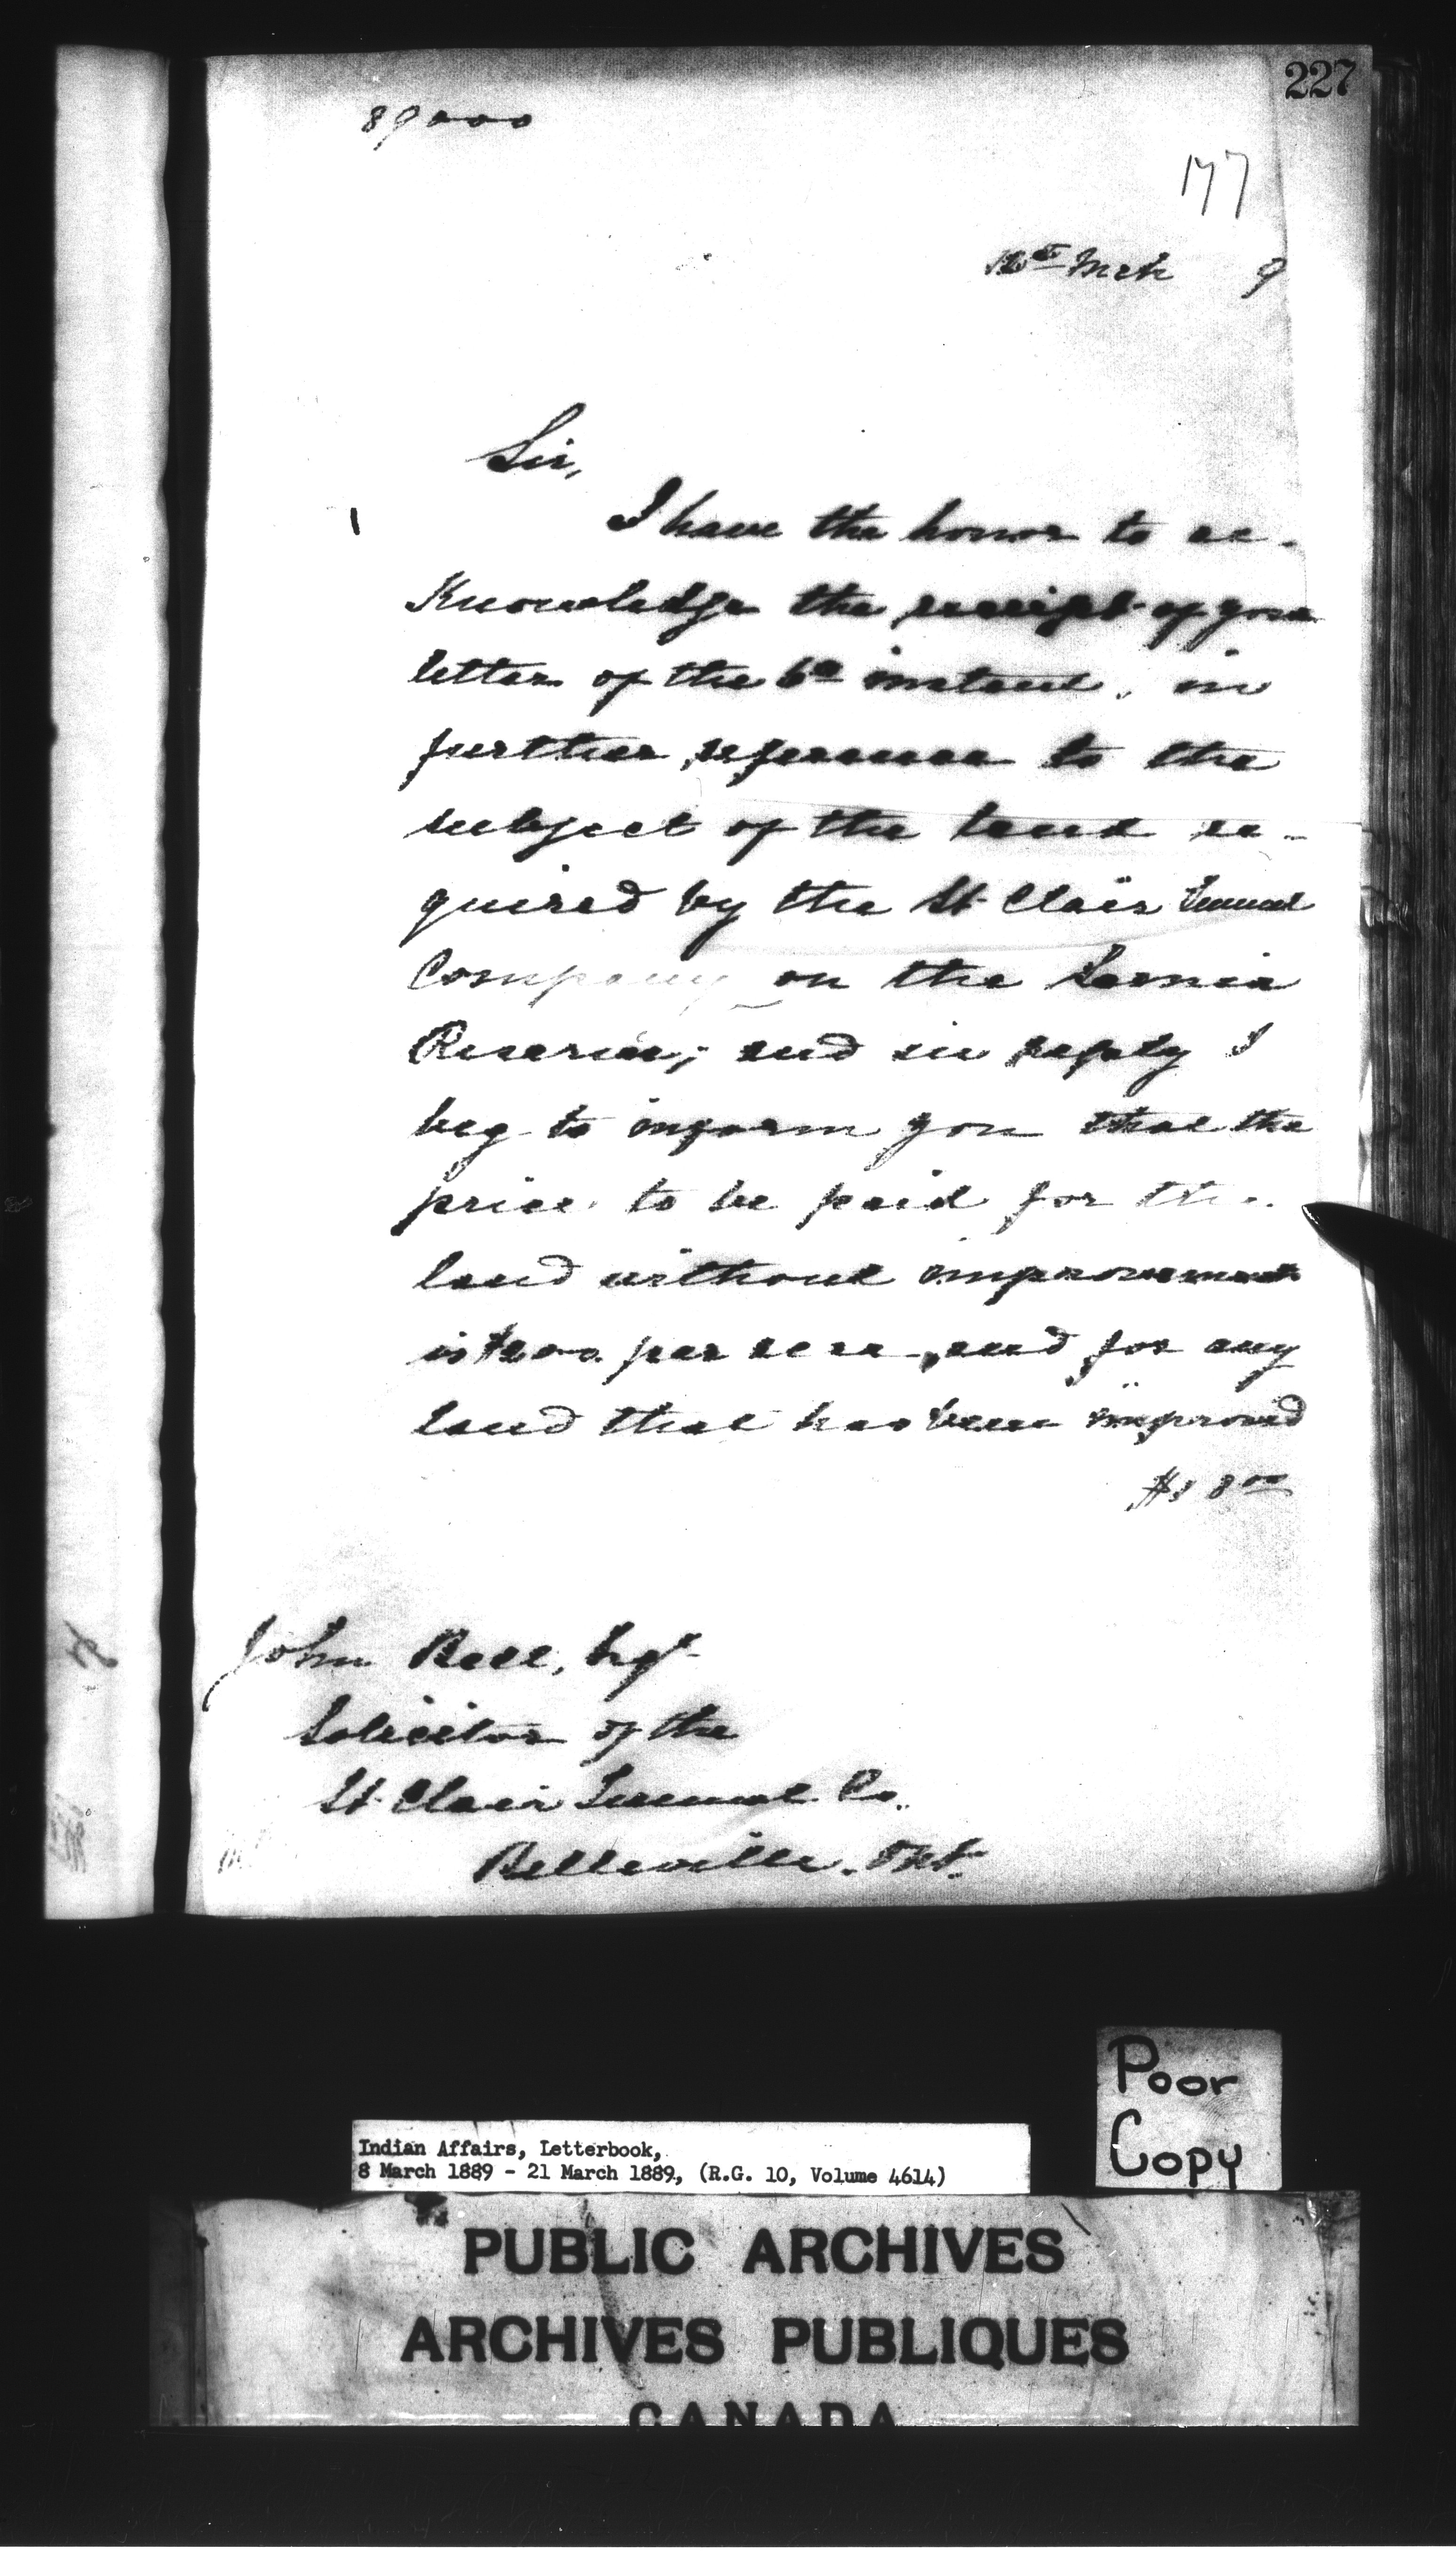 227
89000
177
12th Mch 9
Sir,
I have the honor to ac-
knowledge the receipt of your
letter of the 6th instant, in
further reference to the
subject of the land re-
quired by the St. Clair Tunnel
Company on the Sarnia
Reserve; and in reply I
beg to inform you that the
price to be paid for the
land without improvements
is per acre, and for any
land that has been improved
John Bell, Esqr
Solicitor of the
St. Clair Tunnel Co.
Belleville. Ont.
Poor
Copy
Indian Affairs, Letterbook,
8 March 1889 - 21 March 1889, (R.G. 10, Volume 4614)
PUBLIC ARCHIVES
ARCHIVES PUBLIQUES
CANADA